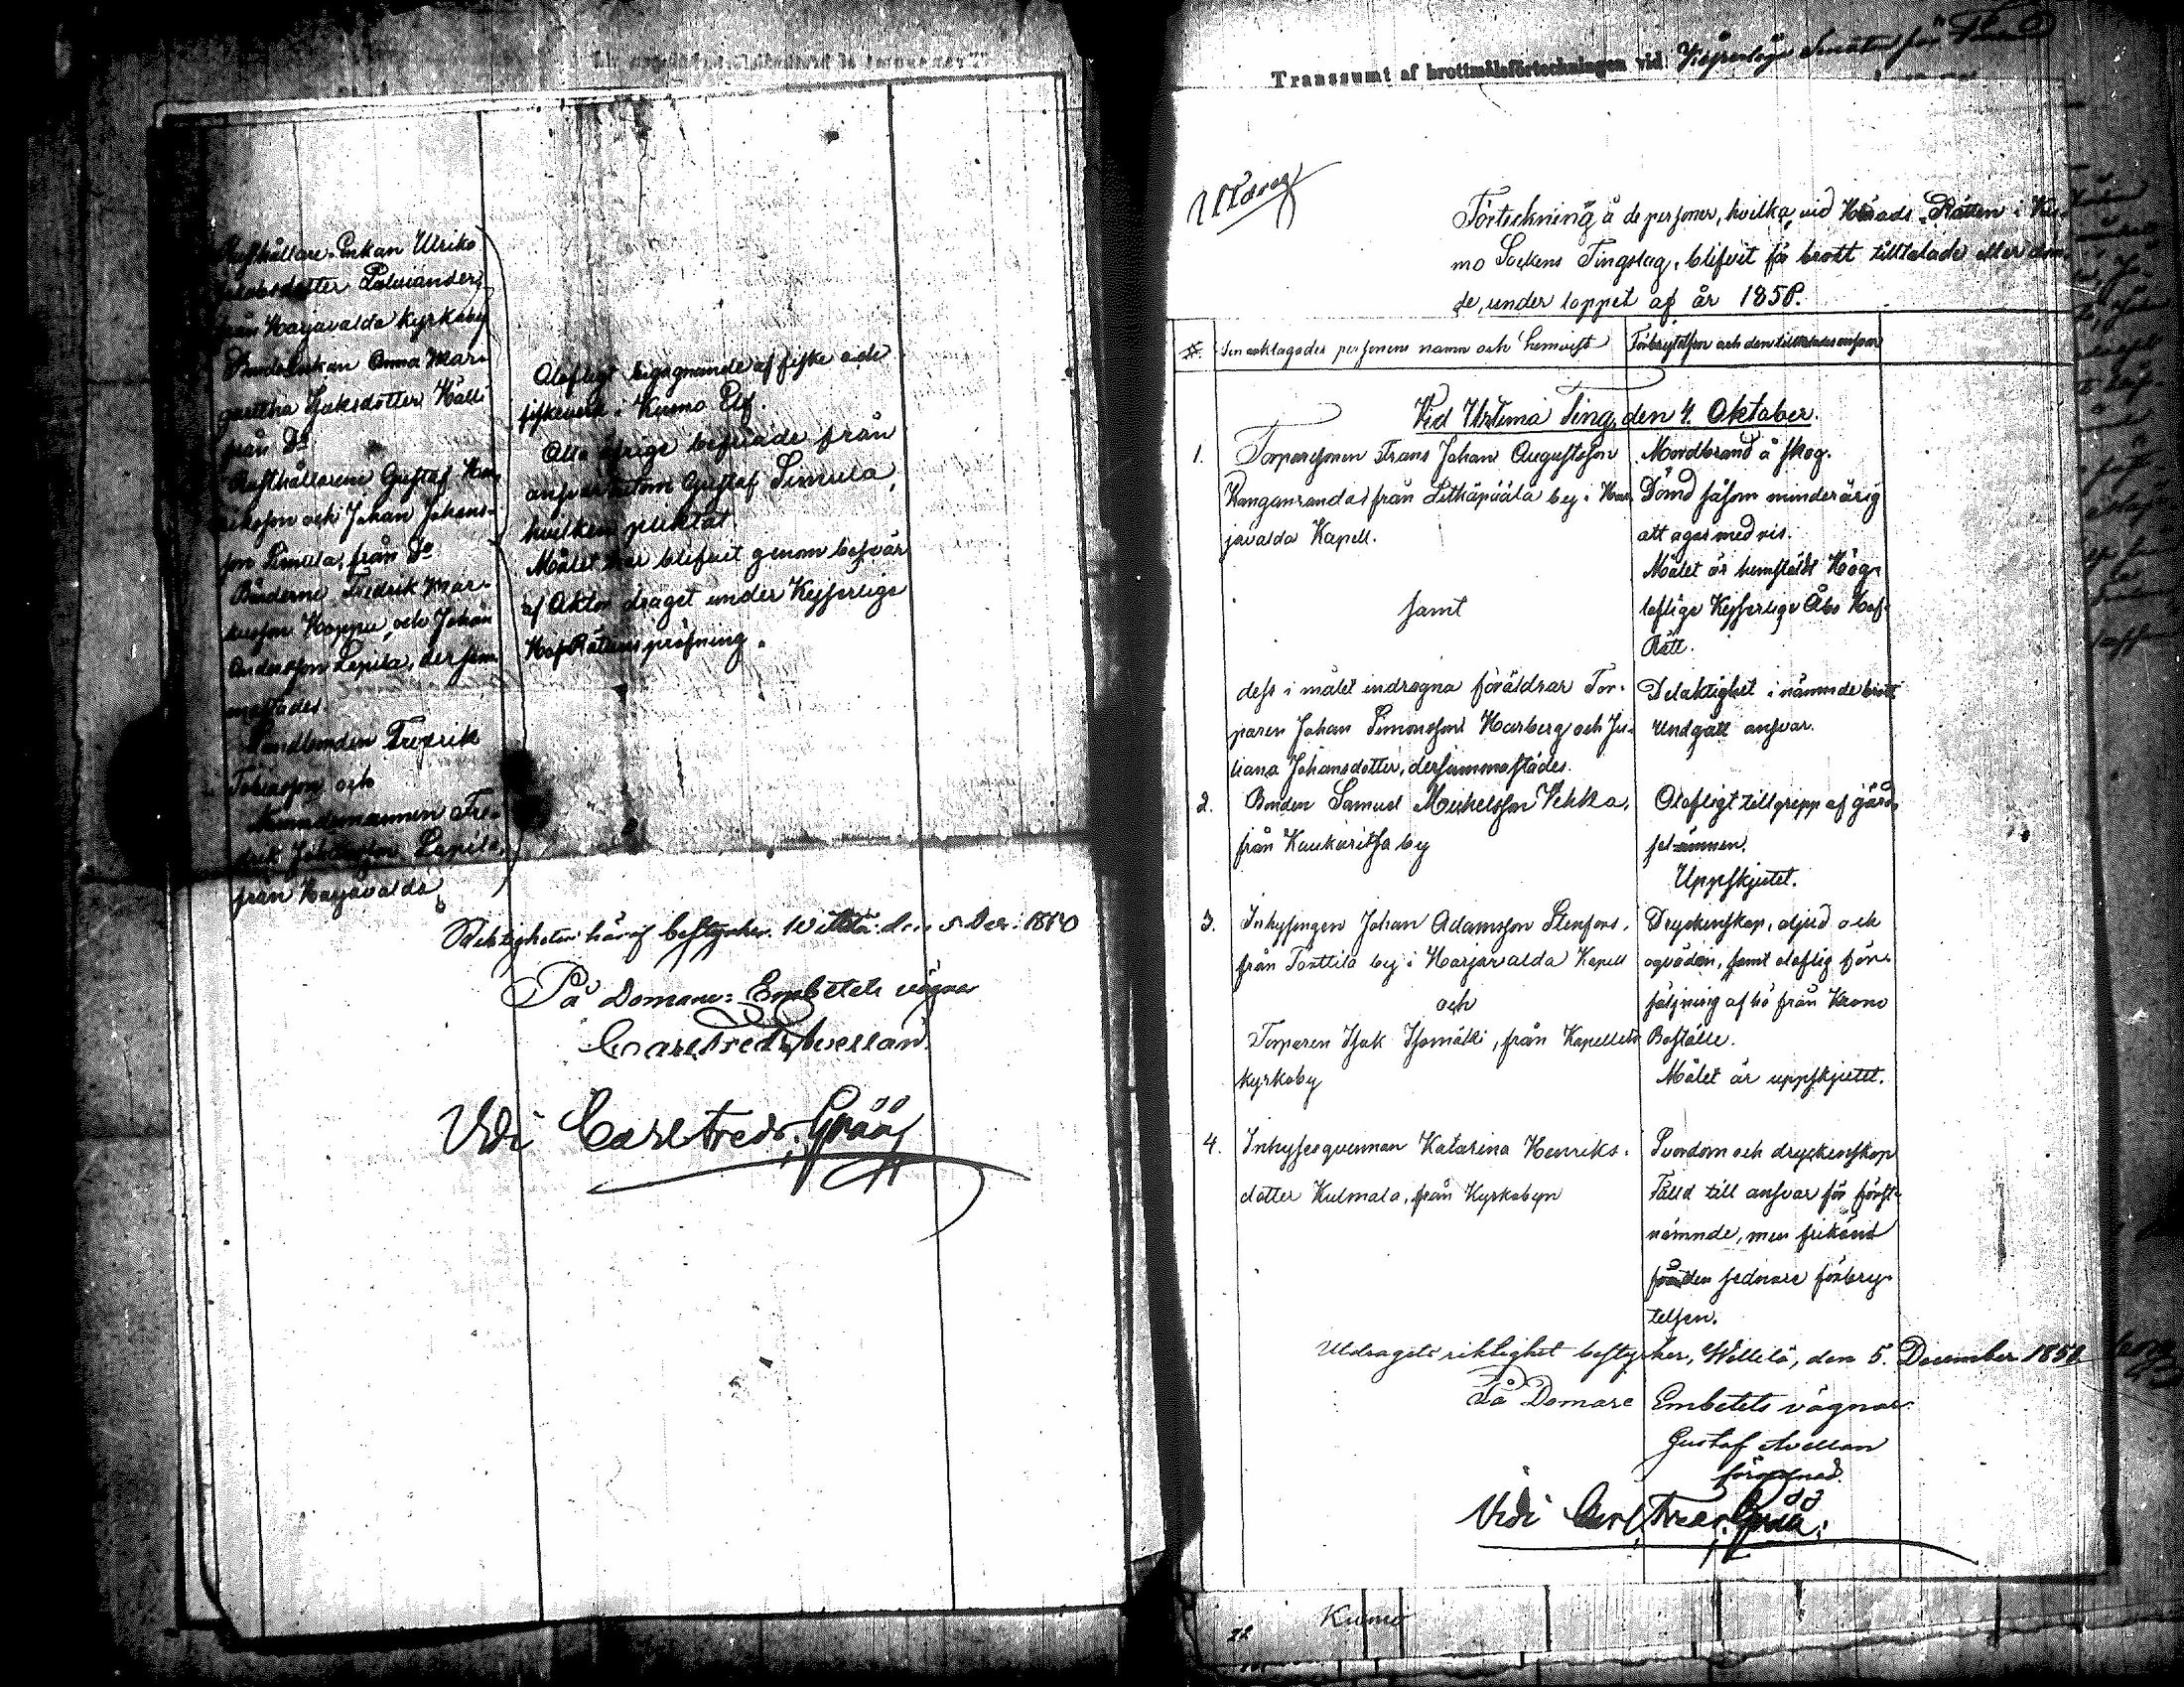 Rusthållare Enkan Ulrika
Jakobsdotter Palmander,
från Harjavalda kyrkoby
Enkan Anna Mar-
garetha Isaksdotter Hälli
från Do
Rusthållarene Gustaf Hen-
riksson och Johan Johans-
son Simula, från Do
Bönderne Fredrik Mar-
kusson Hoppu, och Johan
Andersson Lepila, dersam-
mastädes.
Landbonden Fredrik
Tobiasson och
Nämndemannen Fre-
drik Johansson Lepila,
från Harjavalda
Olofligt begagnande af fiske och
fiskeverk i Kumo Elf.
Alla öfrige befriade från
ansvar utom Gustaf Simula,
hvilken pliktat.
Målet har blifvit genom besvär
af Aktor draget under Kejserlige
Hof Rättens pröfning.
Riktigheten häraf bestyrker. Willilä den 5 Dec. 1870
På Domare Embetets vägnar
Carl Fredr. Avellan.
Vidi Carl Fredr. Gråå
Transsumt af brottmålsförteckningen vid Kejserlige Senaten för Finland
Utdrag
Förteckning å de personer, hvilka vid Härads-Rätten i Ku-
mo Sockens Tingslag, blifvit för brott tilltalade eller döm-
de, under loppet af år 1858.
Den anklagades personens namn och hemvist
Förbrytelsen och den tilltalades ansvar
Vid Urtima Ting, den 4. Oktober.
1. Torparesonen Frans Johan Augustsson
Kanganrandas från by i Har-
javalda Kapell.
samt
dess i målet indragna föräldrar Tor-
paren Johan Simonsson Harberg och Ju-
liana Johansdotter, dersammastädes.
Mordbrand å skog.
Dömd såsom minderårig
att agas med ris.
Målet är hemstäldt Hög-
loflige Kejserlige Åbo Hof-
Rätt.
Delaktighet i nämnde brott
Undgått ansvar.
2. Bonden Samuel Michelsson Vekka,
från Kaukaritsa by
Olofligt tillgrepp af gärd-
selämnen.
Uppskjutet.
3. Inhysingen Johan Adamsson Stenfors,
från Torttila by i Harjavalda Kapell
och
Torparen Isak Isomäki, från Kapellets
kyrkoby
Dryckenskap, oljud och
oqväden, samt oloflig för-
säljning af hö från Krono
Boställe.
Målet är uppskjutet.
4. Inhysesqvinnan Katarina Henriks-
dotter Kulmala, från Kyrkobyn
Svordom och dryckenskap
Fälld till ansvar för först-
nämnde, men frikänd
från den sednare förbry-
telsen.
Utdragets riktighet bestyrker, Willilä, den 5. December 1858
På Domare Embetets vägnar
Gustaf Avellan
förordnad.
Vidi Carl Fredr. Gråå.
Kumo